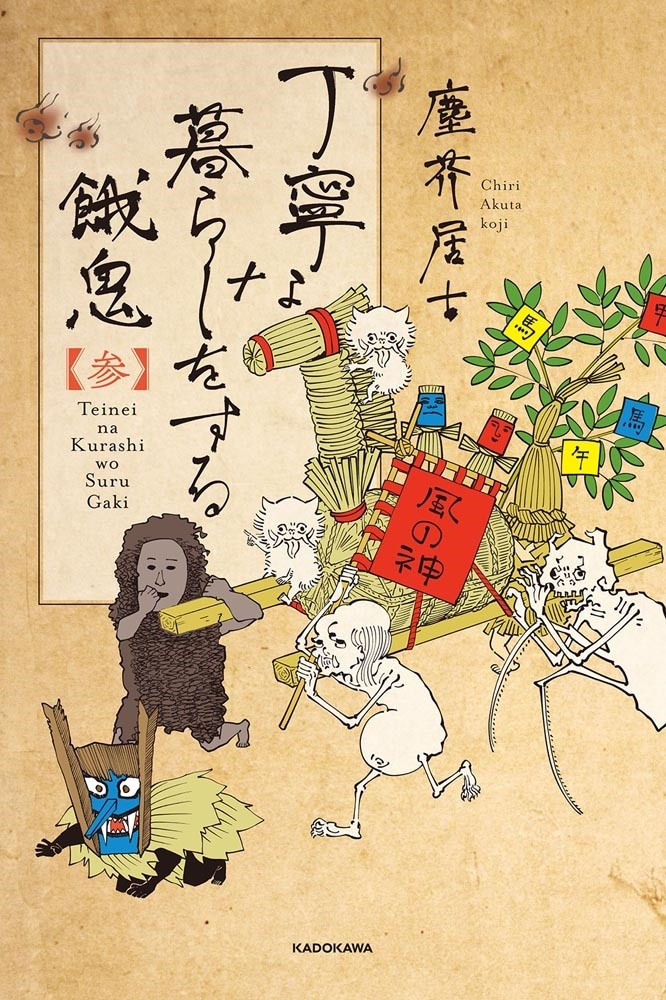 塵芥居士
Chiri
Akuta
koji
丁寧な
暮らしをする
餓鬼
【参】
Teinei
na
Kurashi
wo
Suru
Gaki
馬
甲
馬
午
風の神
KADOKAWA